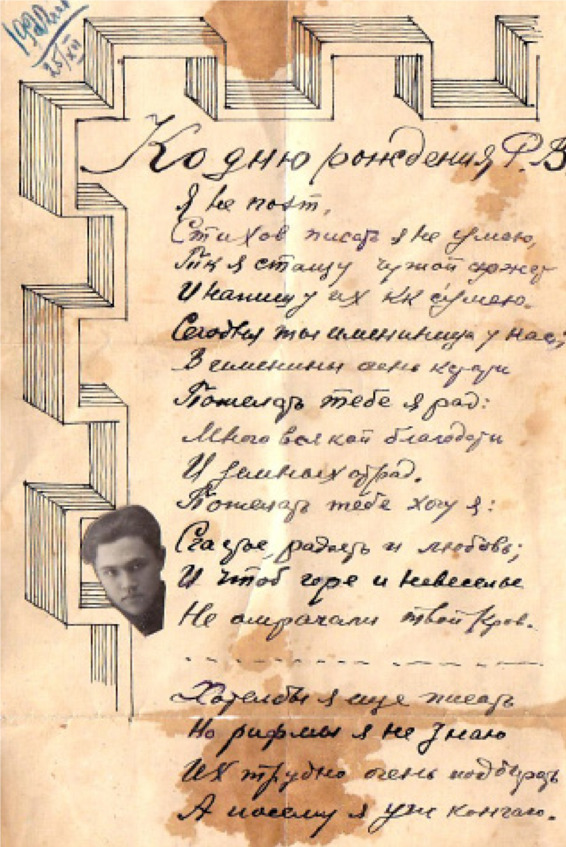 25/XII
Ко дню рождения Р.В
Я не поэт,
Стихов писать я не умею,
Тк я стащу чужой сюжет
И напишу их кк сумею.
Сегодня ты именинница у нас;
В именины день кстати
Пожелать тебе я рад:
Много всякой благодати
И земных отрад.
Пожелать тебе хочу я:
Счастье, радость и любовь;
И чтоб горе и невеселье
Не омрачали твой кров.
Хотелбы я еще писать
Но рифмы я не знаю
Их трудно очень подбирать
А посему я уж кончаю.